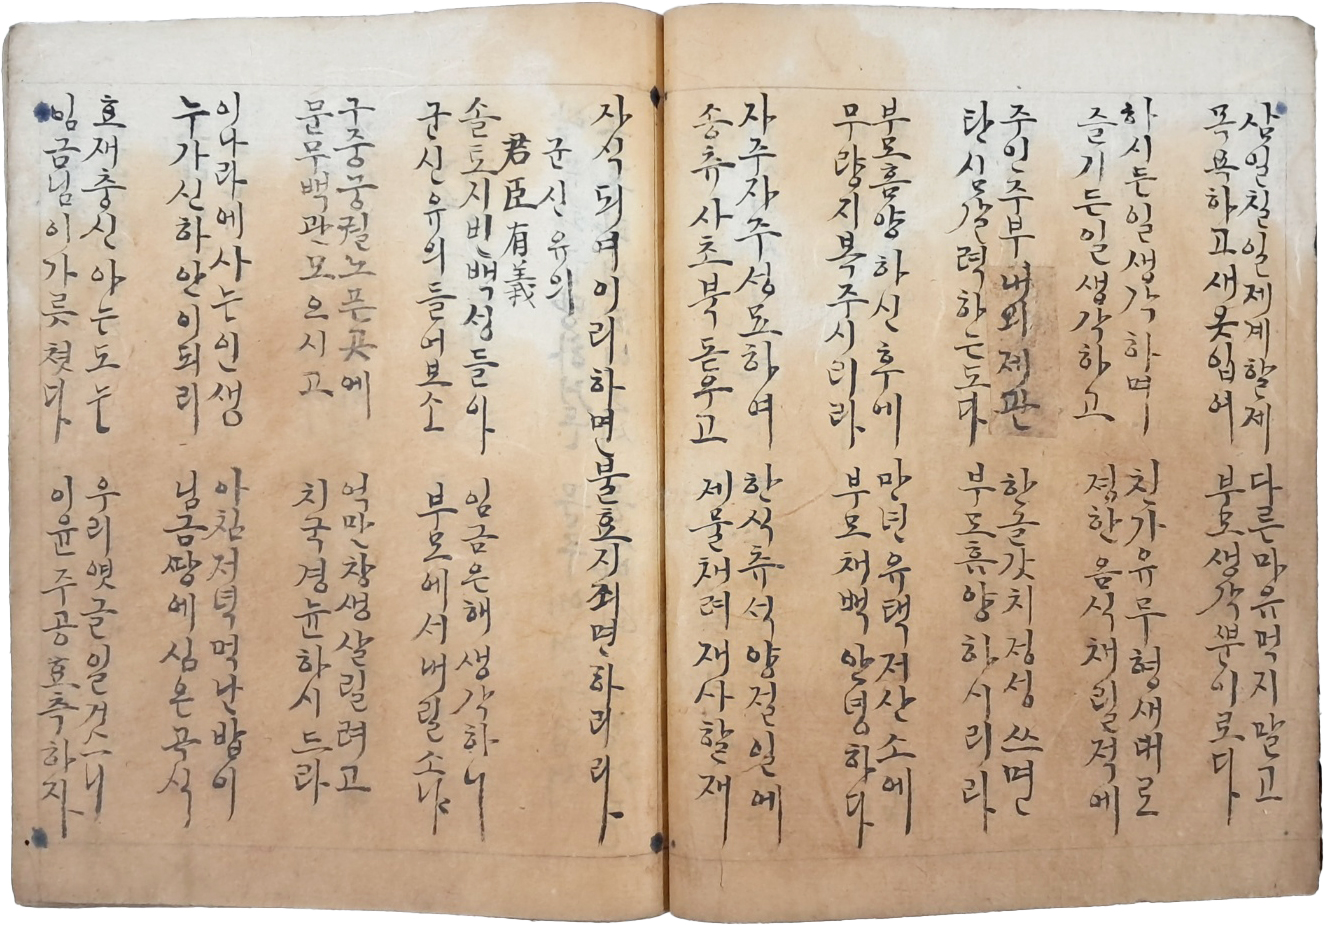 삼일칠일제계할제
목욕하고새옷입여
다른마유먹지말고
부모생각뿐이로다
하시든일생각하며
즐기든일생각하고
친가유무형새대로
졍한음식채릴적에
주인주부내외제관
탄시갈력하는도다
한글갓치졍성쓰면
부모흠양하시리라
부모흠양하신후에
무량지복주시리라
만년유택저산소에
부모채백안녕하다
자주자주성묘하여
송츄사초북돋우고
한식츄석양절일에
제물채려재사할재
자식되여이리하면불효지죄면하리라
군신유의
君臣有義
솔토지빈백성들아
군신유의들어보소
임금은해생각하니
부모에서내릴소냐
구중궁궐노픈곳에
문무백관모으시고
억만창생살릴려고
치국경뉸하시드라
이나라에사는인생
누가신하안이되리
아참저녁먹난밥이
님금땅에심은곡식
효재충신아는도는
임금님이가릇쳣다
우리엿글일것스니
이윤주공효측하자